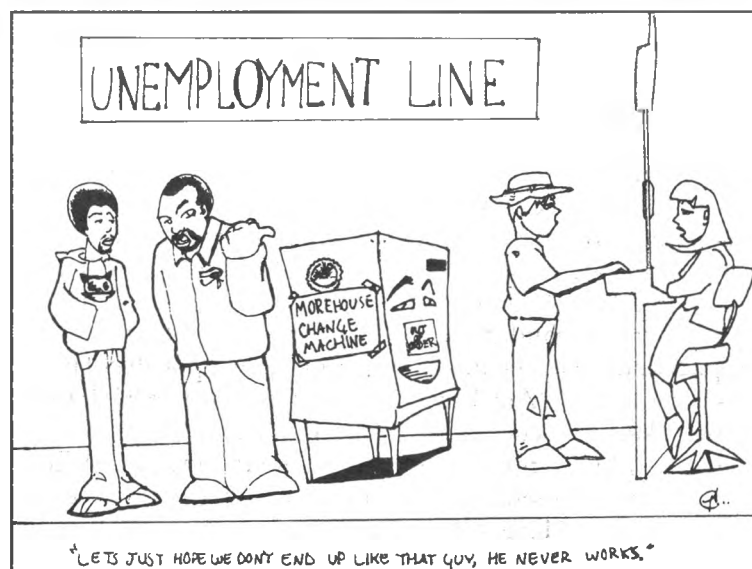 UNEMPLOYMENT LINE
MOREHOUSE
CHANGE
MACHINE
OUT
OF
ORDER
"LETS JUST HOPE WE DONT END UP LIKE THAT GUY, HE NEVER WORKS."